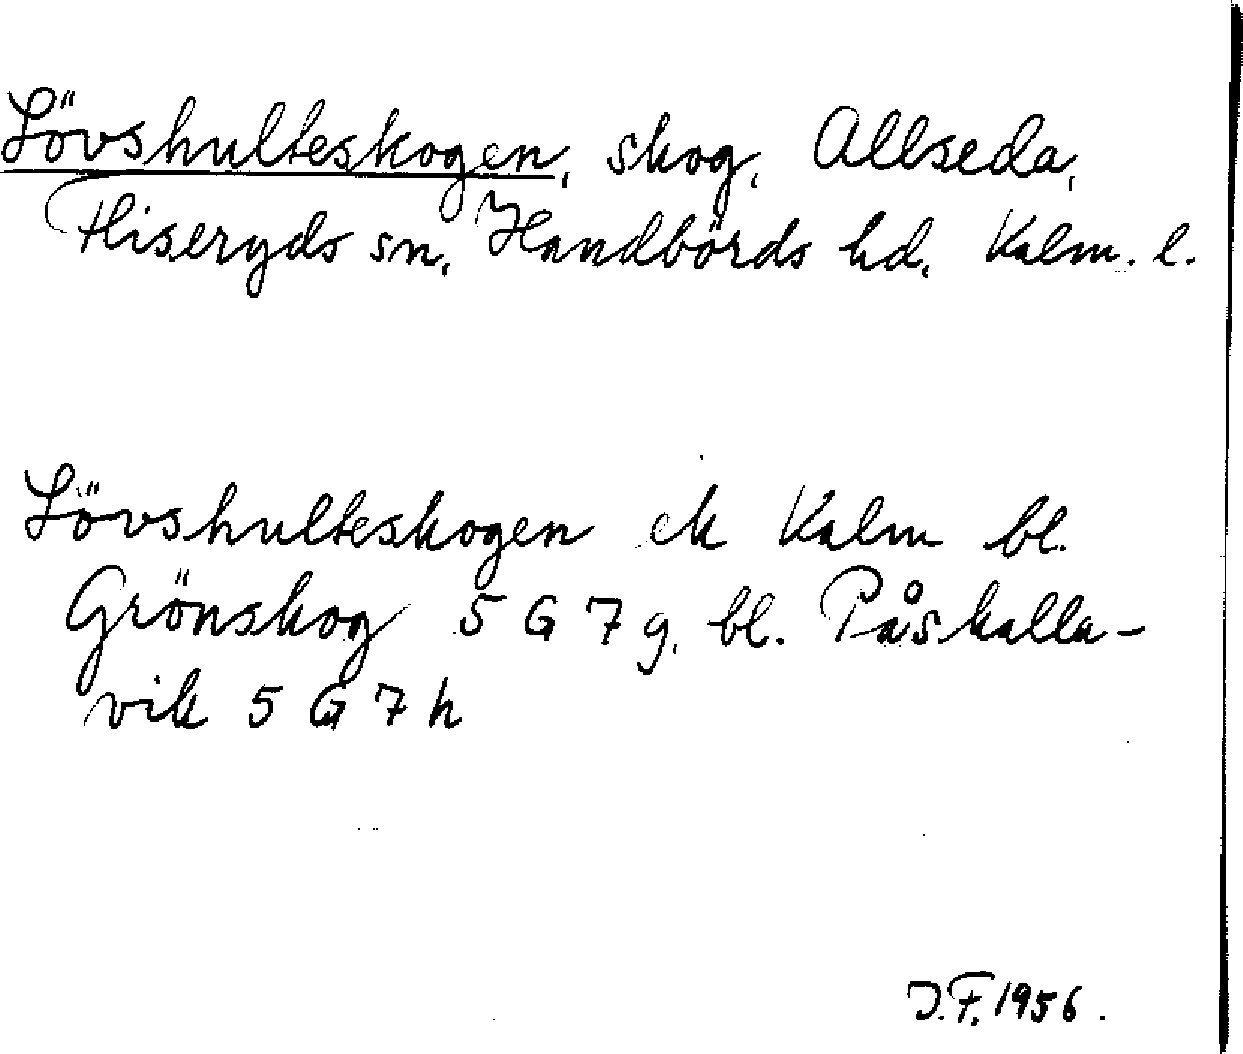 Lövshulteskogen, skog, Allseda,
Fliseryds sn, Handbörds hd, Kalm. l.
Lövshulteskogen ek Kalm bl.
Grönskog 5 G 7 g, bl. Påskalla-
vik 5 G 7 h
J.F. 1956.